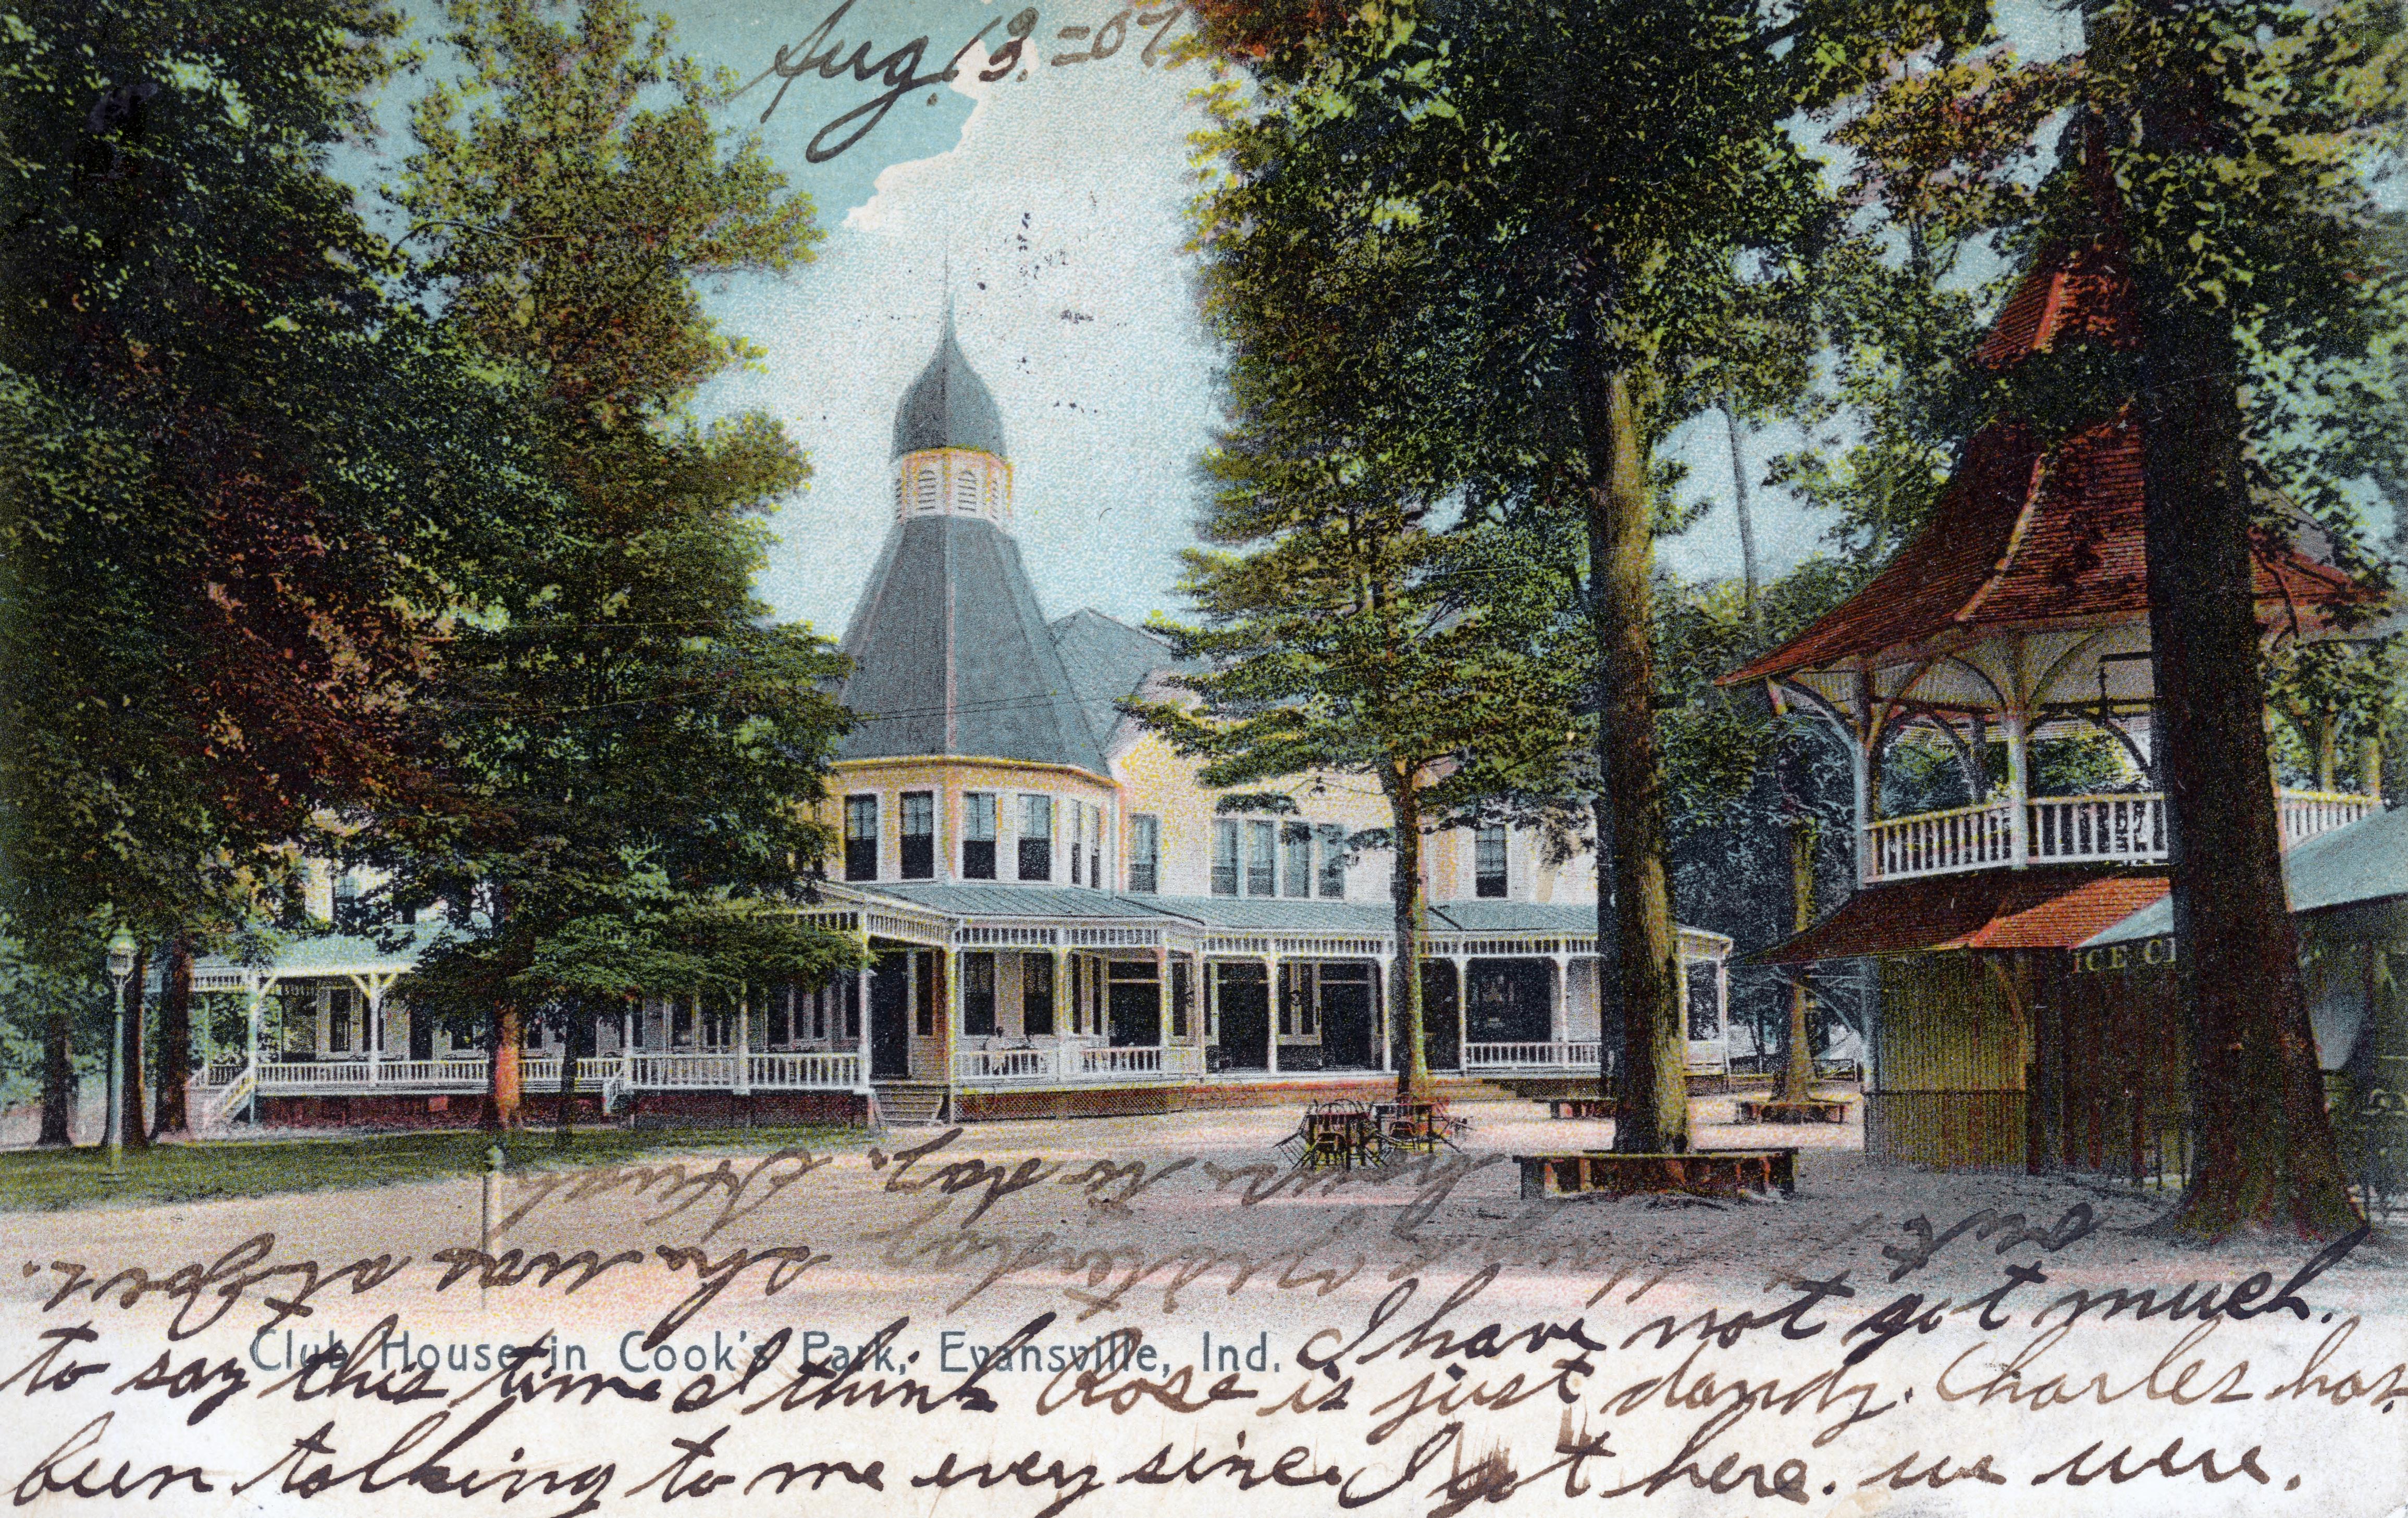 Aug. 13. - 07
ICE C
Club House in Cook's Park, Evansville, Ind.
I have not got much
to say this time I think Rose is just dandy. Charles has
been talking to me every since I got here. we were.
out to yesterday she was at
to day.